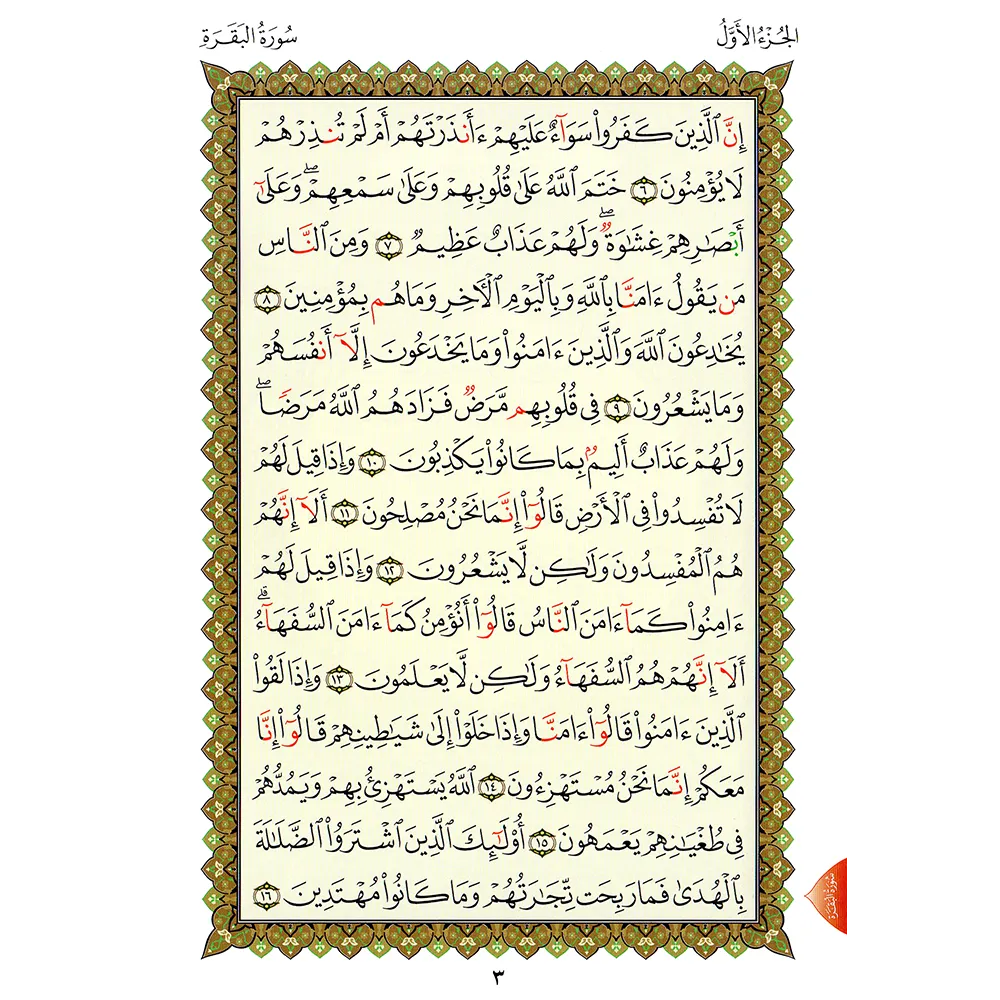 الجُزْءُ الأَوَّلُ
سُورَةُ البَقَرَةِ
إِنَّ ٱلَّذِينَ كَفَرُواْ سَوَآءٌ عَلَيْهِمْ ءَأَنذَرْتَهُمْ أَمْ لَمْ تُنذِرْهُمْ
لَا يُؤْمِنُونَ ٦ خَتَمَ ٱللَّهُ عَلَىٰ قُلُوبِهِمْ وَعَلَىٰ سَمْعِهِمْۖ وَعَلَىٰٓ
أَبْصَٰرِهِمْ غِشَٰوَةٌۖ وَلَهُمْ عَذَابٌ عَظِيمٌ ٧ وَمِنَ ٱلنَّاسِ
مَن يَقُولُ ءَامَنَّا بِٱللَّهِ وَبِٱلْيَوْمِ ٱلْأٓخِرِ وَمَا هُم بِمُؤْمِنِينَ ٨
يُخَٰدِعُونَ ٱللَّهَ وَٱلَّذِينَ ءَامَنُواْ وَمَا يَخْدَعُونَ إِلَّآ أَنفُسَهُمْ
وَمَا يَشْعُرُونَ ٩ فِي قُلُوبِهِم مَّرَضٌ فَزَادَهُمُ ٱللَّهُ مَرَضًاۖ
وَلَهُمْ عَذَابٌ أَلِيمٌۢ بِمَا كَانُواْ يَكْذِبُونَ ١٠ وَإِذَا قِيلَ لَهُمْ
لَا تُفْسِدُواْ فِي ٱلْأَرْضِ قَالُوٓاْ إِنَّمَا نَحْنُ مُصْلِحُونَ ١١ أَلَآ إِنَّهُمْ
هُمُ ٱلْمُفْسِدُونَ وَلَٰكِن لَّا يَشْعُرُونَ ١٢ وَإِذَا قِيلَ لَهُمْ
ءَامِنُواْ كَمَآ ءَامَنَ ٱلنَّاسُ قَالُوٓاْ أَنُؤْمِنُ كَمَآ ءَامَنَ ٱلسُّفَهَآءُۗ
أَلَآ إِنَّهُمْ هُمُ ٱلسُّفَهَآءُ وَلَٰكِن لَّا يَعْلَمُونَ ١٣ وَإِذَا لَقُواْ
ٱلَّذِينَ ءَامَنُواْ قَالُوٓاْ ءَامَنَّا وَإِذَا خَلَوْاْ إِلَىٰ شَيَٰطِينِهِمْ قَالُوٓاْ إِنَّا
مَعَكُمْ إِنَّمَا نَحْنُ مُسْتَهْزِءُونَ ١٤ ٱللَّهُ يَسْتَهْزِئُ بِهِمْ وَيَمُدُّهُمْ
فِي طُغْيَٰنِهِمْ يَعْمَهُونَ ١٥ أُوْلَٰٓئِكَ ٱلَّذِينَ ٱشْتَرَوُاْ ٱلضَّلَٰلَةَ
بِٱلْهُدَىٰ فَمَا رَبِحَت تِّجَٰرَتُهُمْ وَمَا كَانُواْ مُهْتَدِينَ ١٦
سُورَةُ البَقَرَةِ
٣